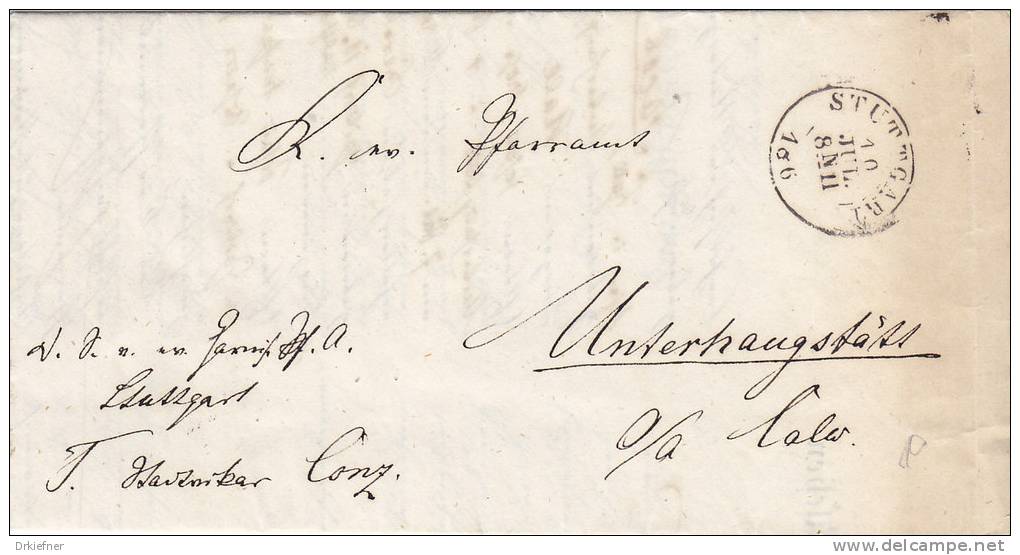 K. ev. Pfarramt
STUTTGART
10
JUL
8 N II
186
Unterhaugstätt
O/A Calw.
D. S. v. ev. Garnis. Pf. A.
Stuttgart
T. Stadtvikar Conz.
Drkiefner
delcampe.net